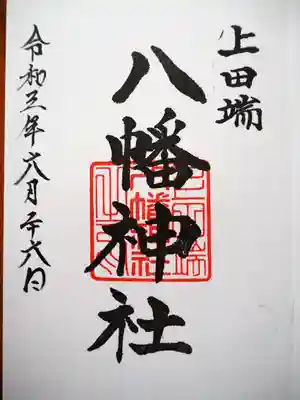 上田端
八幡神社
令和三年六月十六日